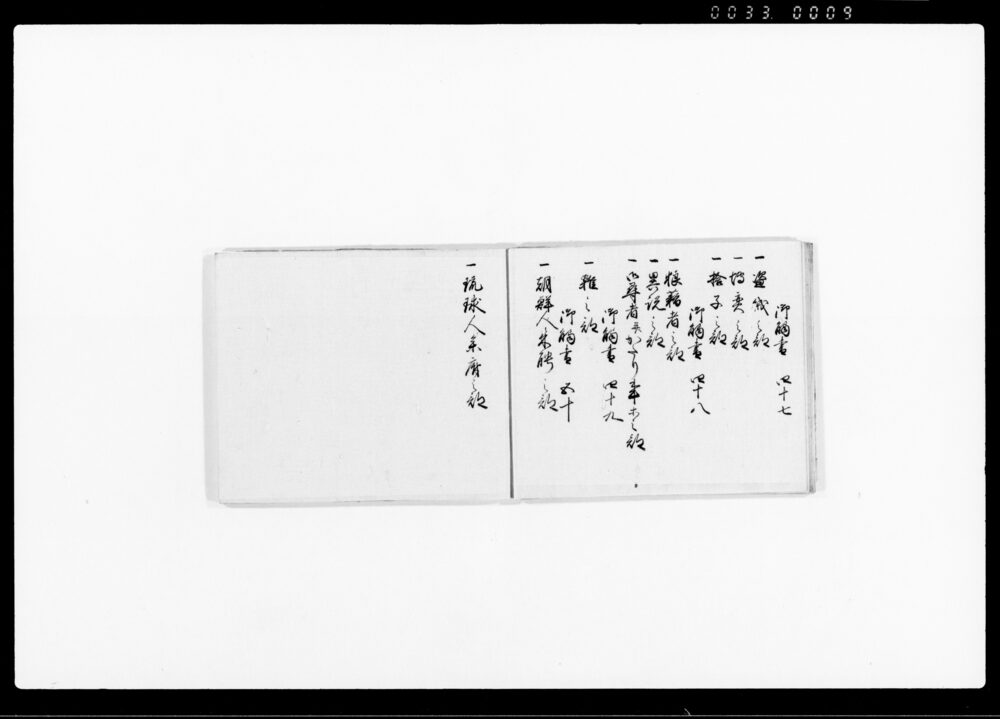 0033 0009
御觸書 四十七
一盗賊之部
一博奕之部
一捨子之部
御觸書 四十八
一狼藉者之部
一異説之部
一御尋者并かたり事等之部
御觸書 四十九
一雜之部
御觸書 五十
一朝鮮人来聘之部
一琉球人来府之部